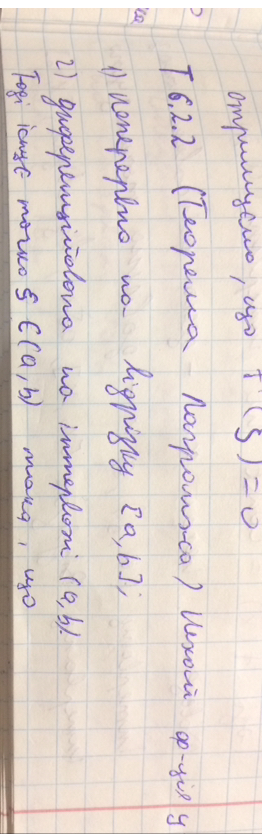 отримуємо, що f'(ξ)=0
Т 6.2.2 (Теорема Лагранжа) Нехай ф-ція y
1) Неперервна на відрізку [a,b];
2) диференційовна на інтервалі (a,b).
Тоді існує точка ξ ∈ (a,b) така, що